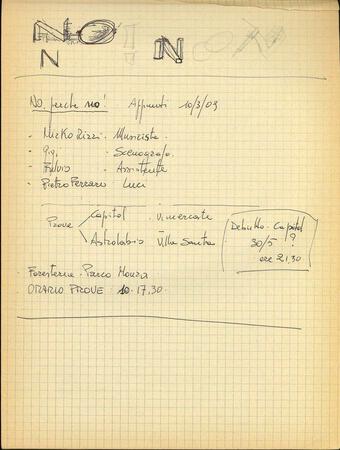 NO! N
N
No, perche no! Appunti 10/3/09
- Mirko Rizzi. Musicista.
- Gigi Scenografo.
- Fulvio Assistente
- Pietro Ferrari Luci
Prove Capitol Vimercate
Astrolabio Villa Santa
Debutto. Capitol
30/5 ?
ore 21,30
Foresteria. Parco Monza
ORARIO PROVE 10. 17,30.